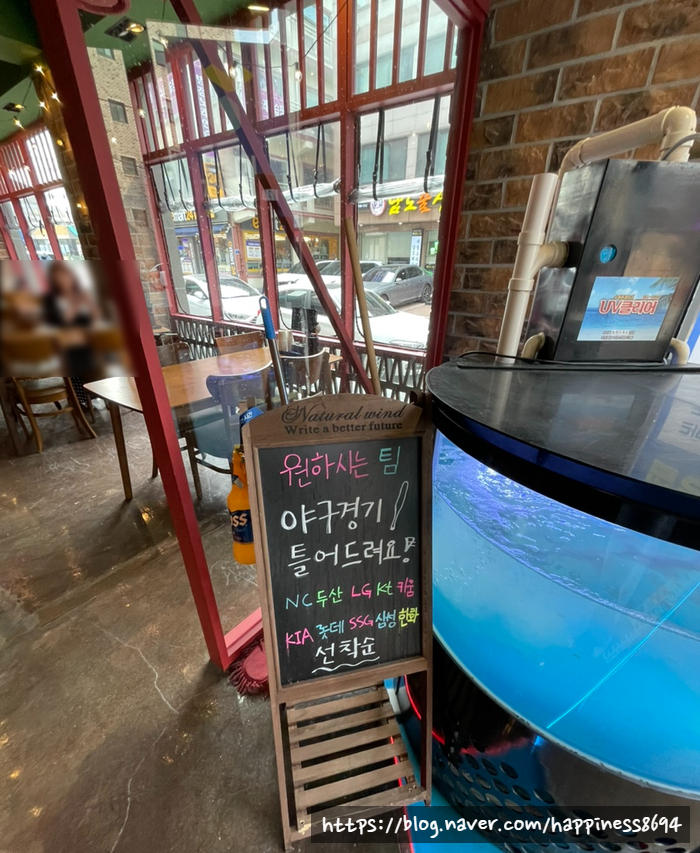 emart24
남노올
UV클리어
Natural wind
Write a better future
원하시는 팀
야구경기
틀어드려요
NC 두산 LG Kt 키움
KIA 롯데 SSG 삼성 한화
선착순
https://blog.naver.com/happiness8694